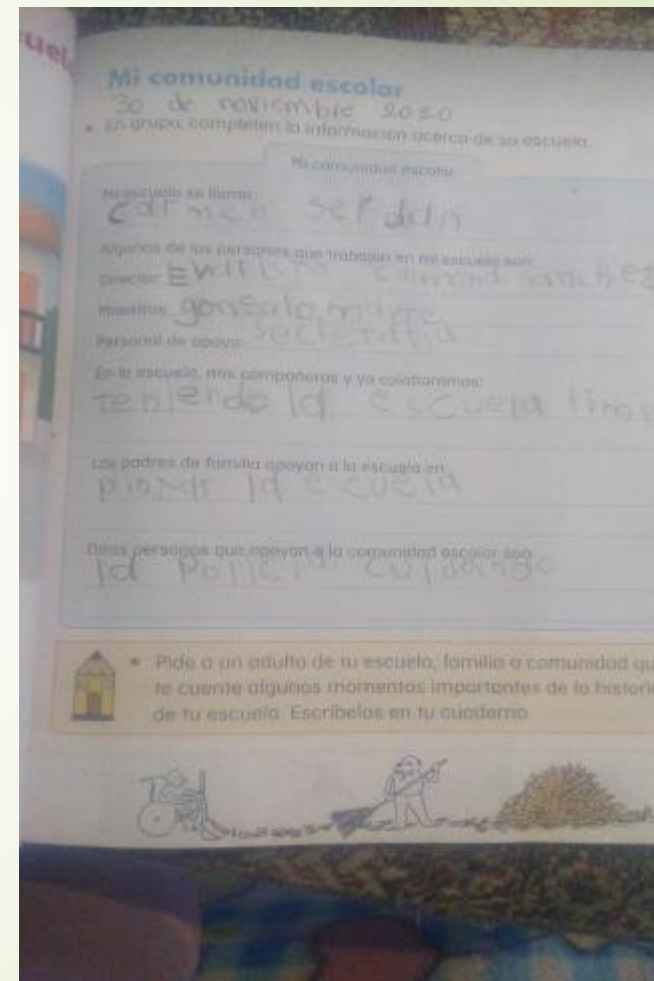 cuel
Mi comunidad escolar
30 de noviembre 2020
En grupo, completen la información acerca de su escuela.
Mi comunidad escolar
Mi escuela se llama:
carmen serdan
Algunas de las personas que trabajan en mi escuela son:
Director: sanchez
Maestros: gonsalo
Personal de apoyo: secretaria
En la escuela, mis compañeros y yo colaboramos:
teniendo la escuela
Los padres de familia apoyan a la escuela en
la
Otras personas que apoyan a la comunidad escolar son
la policia cuidando
Pide a un adulto de tu escuela, familia o comunidad qu
te cuente algunos momentos importantes de la histori
de tu escuela. Escríbelos en tu cuaderno.